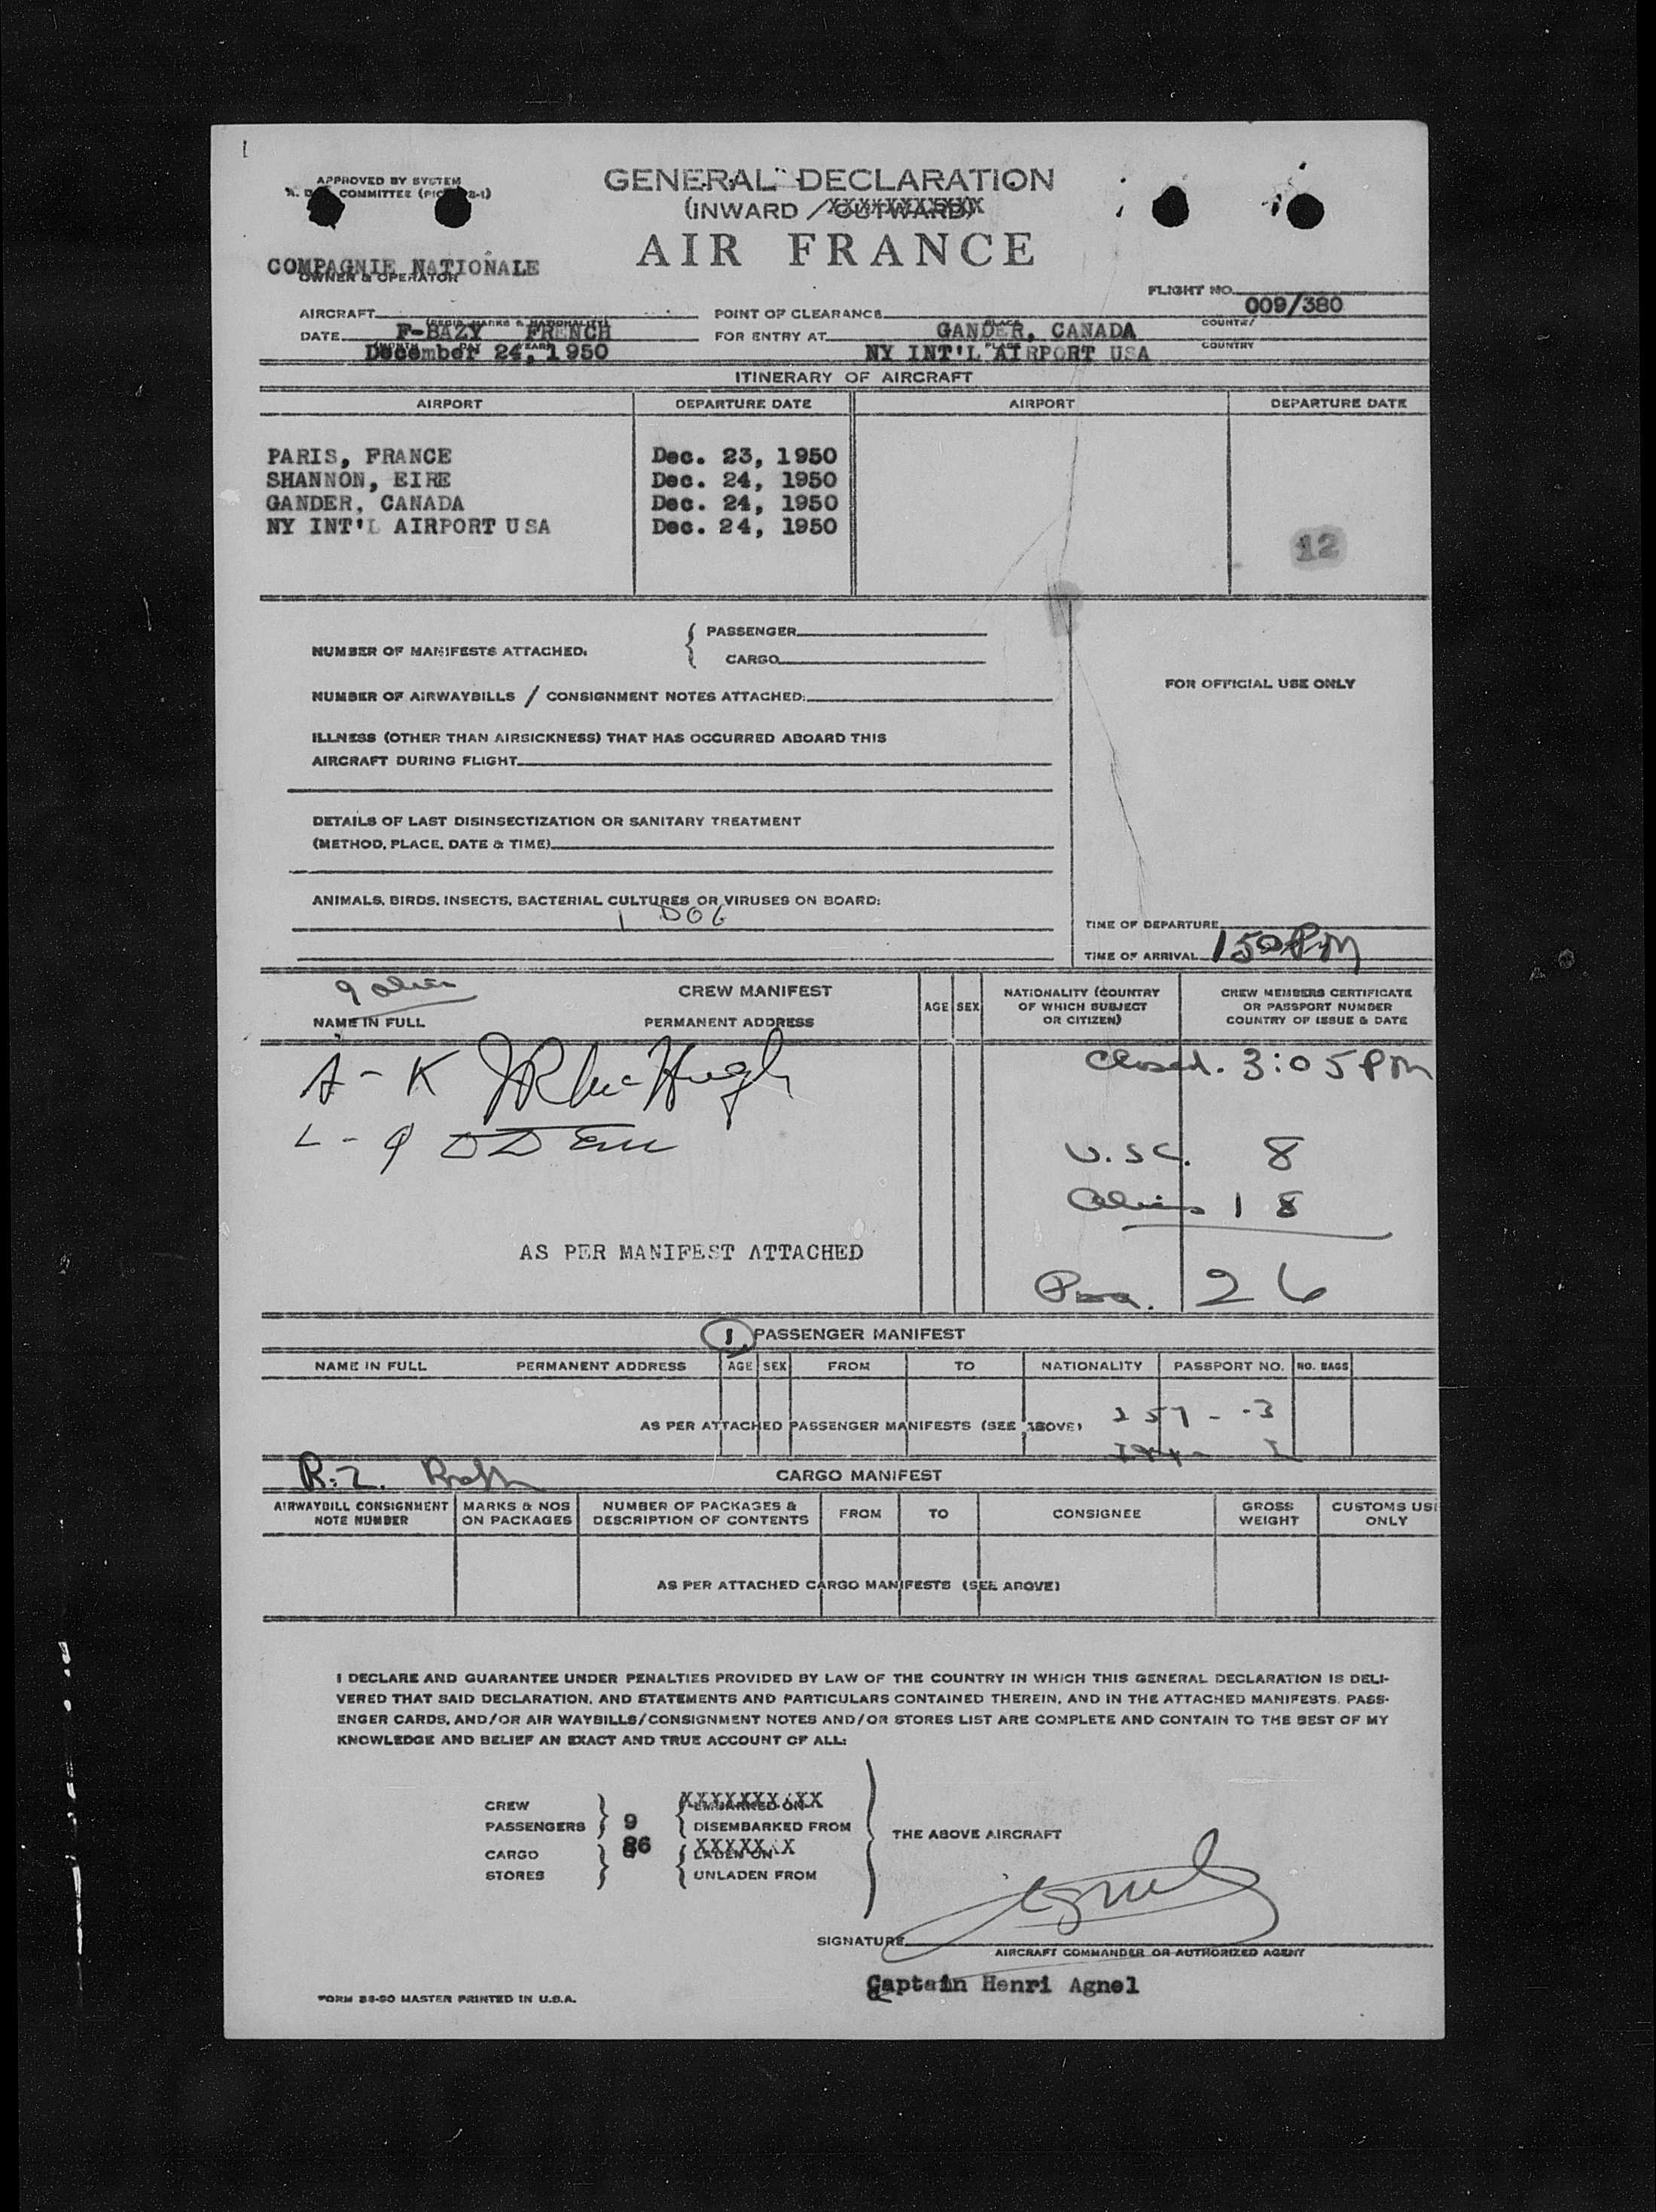 1
APPROVED BY SYSTEM
COMMITTEE
GENERAL DECLARATION
(INWARD / OUTWARD)
AIR FRANCE
COMPAGNIE NATIONALE
OWNER & OPERATOR
FLIGHT NO. 009/380
AIRCRAFT F-BAZY FRENCH
(REGIS. MARKS & NATIONALITY)
POINT OF CLEARANCE GANDER, CANADA
PLACE COUNTRY
DATE December 24, 1950
MONTH DAY YEAR
FOR ENTRY AT NY INT'L AIRPORT USA
PLACE COUNTRY
ITINERARY OF AIRCRAFT
AIRPORT DEPARTURE DATE AIRPORT DEPARTURE DATE
PARIS, FRANCE Dec. 23, 1950
SHANNON, EIRE Dec. 24, 1950
GANDER, CANADA Dec. 24, 1950
NY INT'L AIRPORT USA Dec. 24, 1950
12
NUMBER OF MANIFESTS ATTACHED: PASSENGER
CARGO
FOR OFFICIAL USE ONLY
NUMBER OF AIRWAYBILLS / CONSIGNMENT NOTES ATTACHED:
ILLNESS (OTHER THAN AIRSICKNESS) THAT HAS OCCURRED ABOARD THIS
AIRCRAFT DURING FLIGHT
DETAILS OF LAST DISINSECTIZATION OR SANITARY TREATMENT
(METHOD, PLACE, DATE & TIME)
ANIMALS, BIRDS, INSECTS, BACTERIAL CULTURES OR VIRUSES ON BOARD:
1 DOG
TIME OF DEPARTURE
TIME OF ARRIVAL 150 PM
9 aliens
CREW MANIFEST
NAME IN FULL PERMANENT ADDRESS
AGE SEX
NATIONALITY (COUNTRY
OF WHICH SUBJECT
OR CITIZEN)
CREW MEMBERS CERTIFICATE
OR PASSPORT NUMBER
COUNTRY OF ISSUE & DATE
A - K JR McHugh
Closed. 3:05 PM
L -
U.S.C. 8
Aliens 18
AS PER MANIFEST ATTACHED
26
1 PASSENGER MANIFEST
NAME IN FULL PERMANENT ADDRESS AGE SEX FROM TO NATIONALITY PASSPORT NO. NO. BAGS
257 - - 3
AS PER ATTACHED PASSENGER MANIFESTS (SEE ABOVE)
CARGO MANIFEST
AIRWAYBILL CONSIGNMENT
NOTE NUMBER
MARKS & NOS
ON PACKAGES
NUMBER OF PACKAGES &
DESCRIPTION OF CONTENTS
FROM
TO
CONSIGNEE
GROSS
WEIGHT
CUSTOMS USE
ONLY
AS PER ATTACHED CARGO MANIFESTS (SEE ABOVE)
I DECLARE AND GUARANTEE UNDER PENALTIES PROVIDED BY LAW OF THE COUNTRY IN WHICH THIS GENERAL DECLARATION IS DELI-
VERED THAT SAID DECLARATION, AND STATEMENTS AND PARTICULARS CONTAINED THEREIN, AND IN THE ATTACHED MANIFESTS, PASS-
ENGER CARDS, AND/OR AIR WAYBILLS/CONSIGNMENT NOTES AND/OR STORES LIST ARE COMPLETE AND CONTAIN TO THE BEST OF MY
KNOWLEDGE AND BELIEF AN EXACT AND TRUE ACCOUNT OF ALL:
CREW EMBARKED ON
PASSENGERS 9 DISEMBARKED FROM
THE ABOVE AIRCRAFT
CARGO LADEN ON
STORES UNLADEN FROM
SIGNATURE
AIRCRAFT COMMANDER OR AUTHORIZED AGENT
Captain Henri Agnel
FORM 33-50 MASTER PRINTED IN U.S.A.